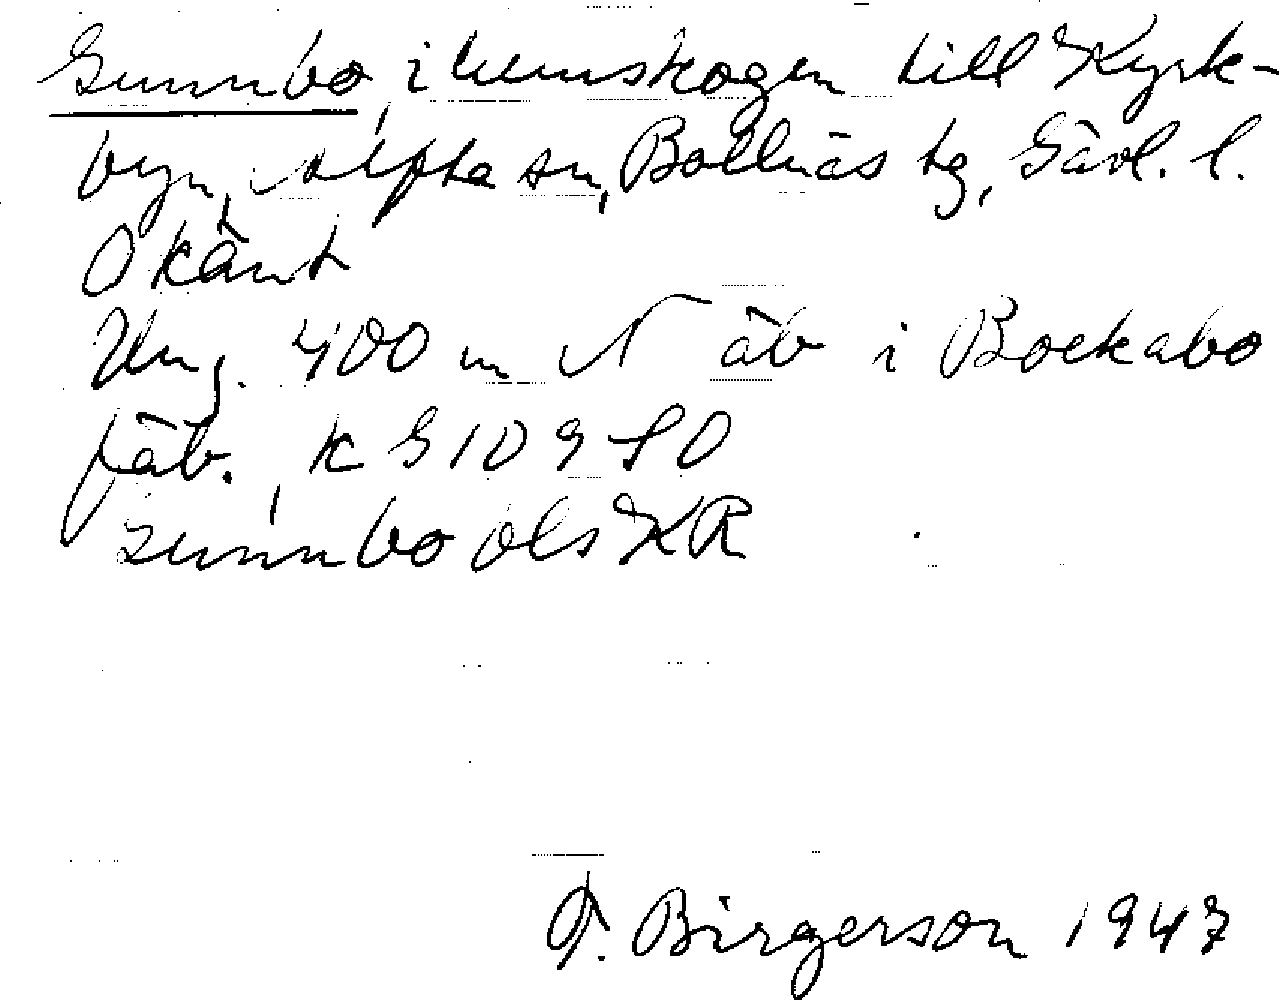 Gunnbo, i hemskogen till Kyrk-
byn, Alfta sn, Bollnäs tg, Gävl. l.
Okänt
Ung. 400 m N äb i Bockabo
fäb. K G 109 SO
Gunnbo ols KR
F. Birgerson 1947